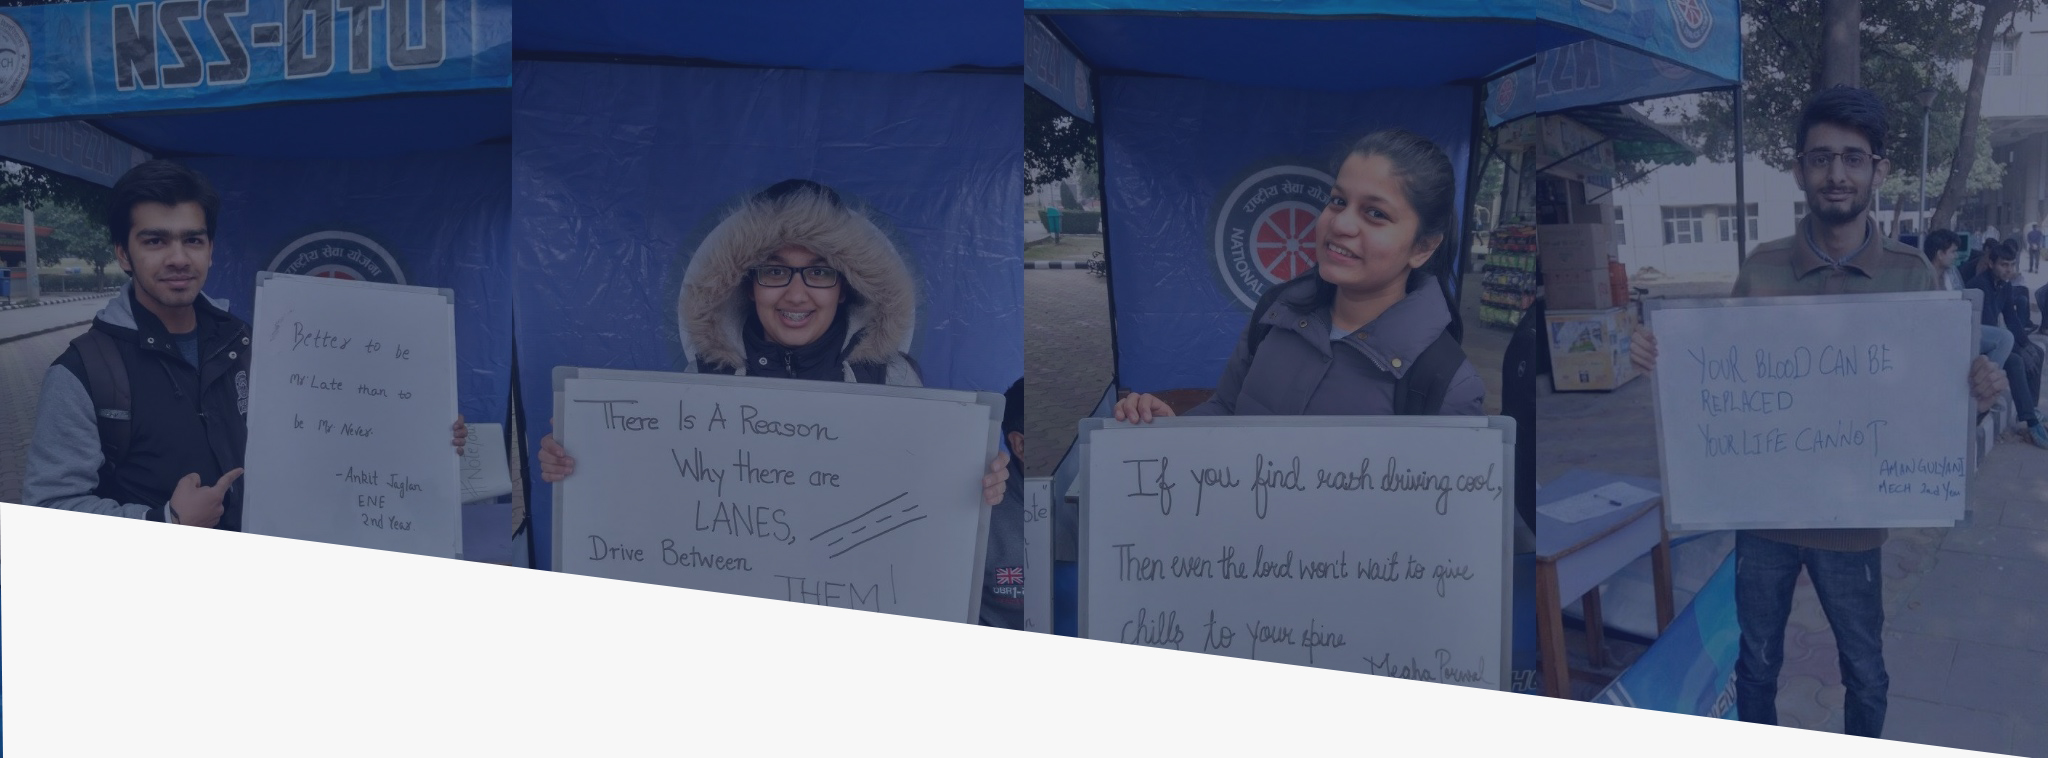 NSS-DTU
राष्ट्रीय सेवा योजना
Better to be
Mr Late than to
be Mr Never.
-Ankit Jaglan
ENE
2nd Year
There Is A Reason
Why there are
LANES,
Drive Between
THEM!
राष्ट्रीय सेवा
NATIONAL
If you find rash driving cool,
Then even the lord won't wait to give
chills to your spine
Megha Porwal
YOUR BLOOD CAN BE
REPLACED
YOUR LIFE CANNOT
AMAN GULYANI
MECH 2nd Year